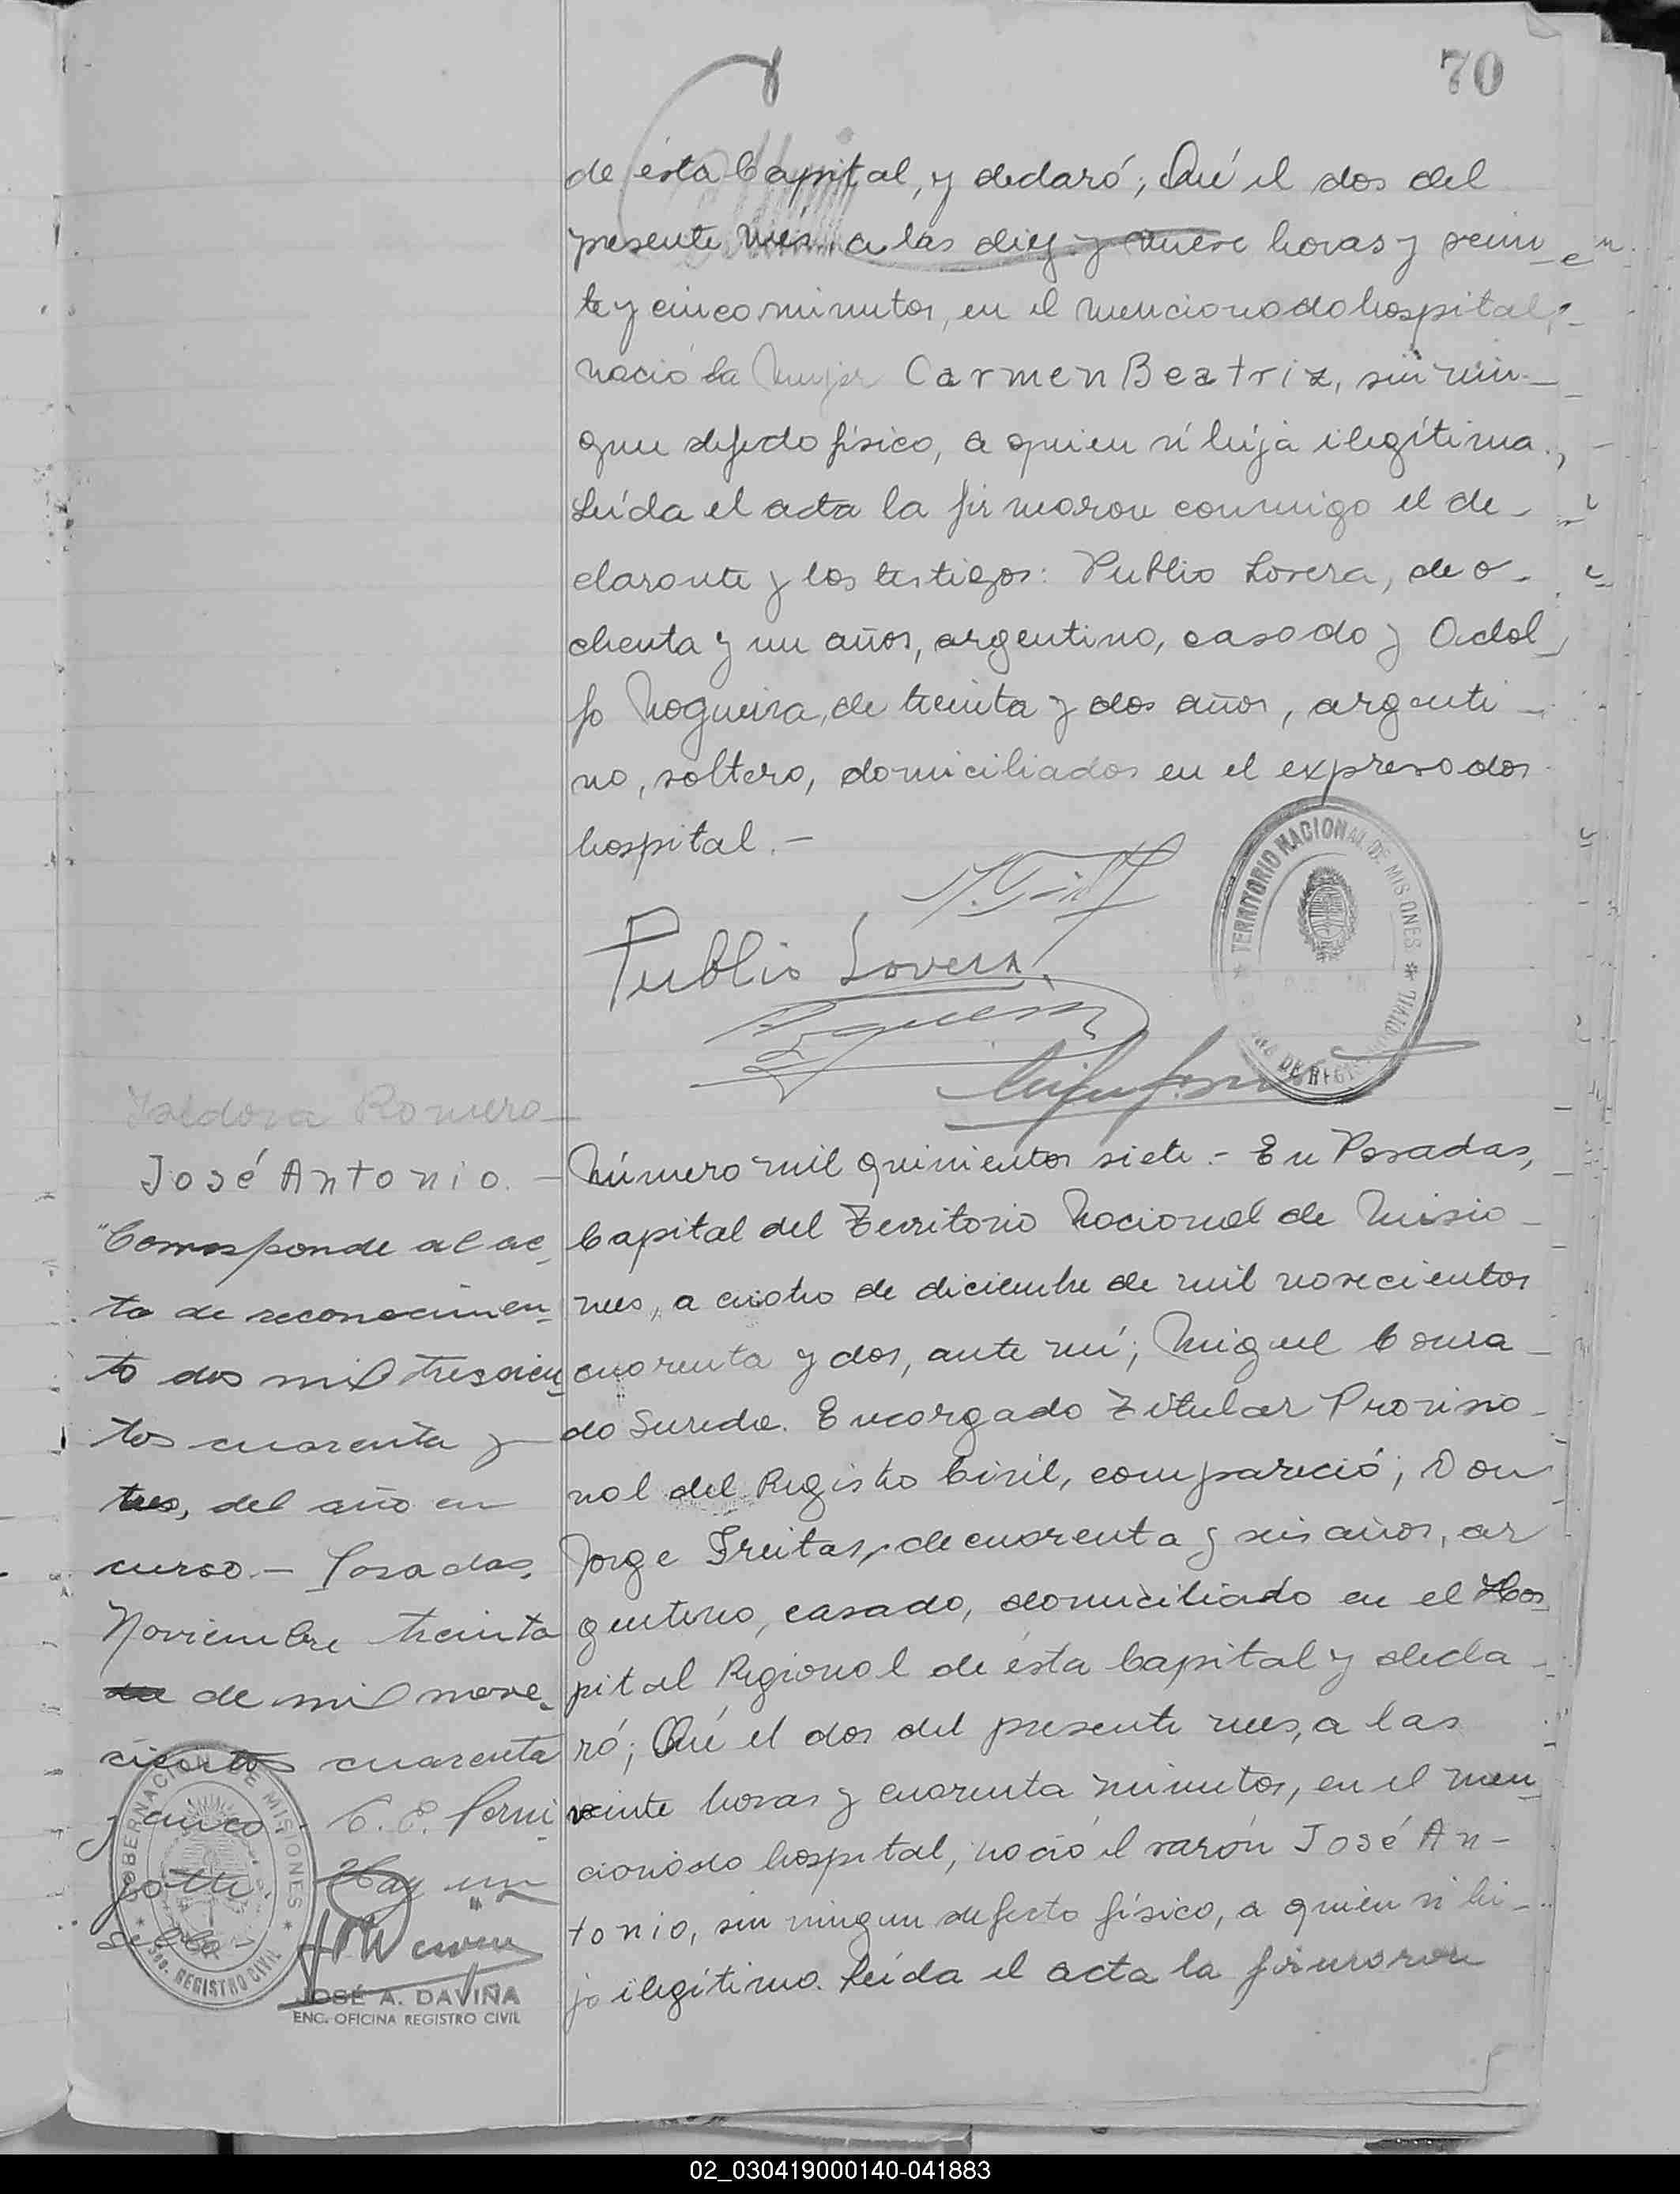 70
de ésta Capital, y declaró; Qué el dos del
presente mes, a las diez y nueve horas y vein
te y cinco minutos, en el mencionado hospital,
nació la mujer Carmen Beatriz, sin nin-
gun defecto físico, a quien ví hija ilegítima.,
Leída el acta la firmaron conmigo el de-
clarante y los testigos: Publio Lovera, de o-
chenta y un años, argentino, casado y Adol
fo Nogueira, de treinta y dos años, argenti-
no, soltero, domiciliados en el expresados
hospital.-
Publio Lovera
TERRITORIO NACIONAL DE MISIONES
DE REGISTRO CIVIL
Isidora Romero
José Antonio.
"Corresponde al ac-
ta de reconocimien-
to dos mil trescien-
tos cuarenta y
tres, del año en
curso.- Posadas,
Noviembre treinta
de mil nove-
cientos cuarenta
y cinco. C. E. Perni
gotti. Hay un
sello"
GOBERNACION DE MISIONES
REGISTRO CIVIL
JOSÉ A. DAVIÑA
ENC. OFICINA REGISTRO CIVIL
Número mil quinientos siete.- En Posadas,
Capital del Territorio Nacional de Misio-
nes, a cuatro de diciembre de mil novecientos
cuarenta y dos, ante mí; Miguel Conra-
do Sureda. Encargado Titular Provisio-
nal del Registro Civil, compareció; Don
Jorge Freitas, de cuarenta y seis años, ar
gentino, casado, domiciliado en el Hos
pital Regional de ésta Capital y decla-
ró; Qué el dos del presente mes, a las
veinte horas y cuarenta minutos, en el men-
cionado hospital, nació el varón José An-
tonio, sin ningun defecto físico, a quien ví hi-
jo ilegítimo. Leída el acta la firmaron
02_030419000140-041883